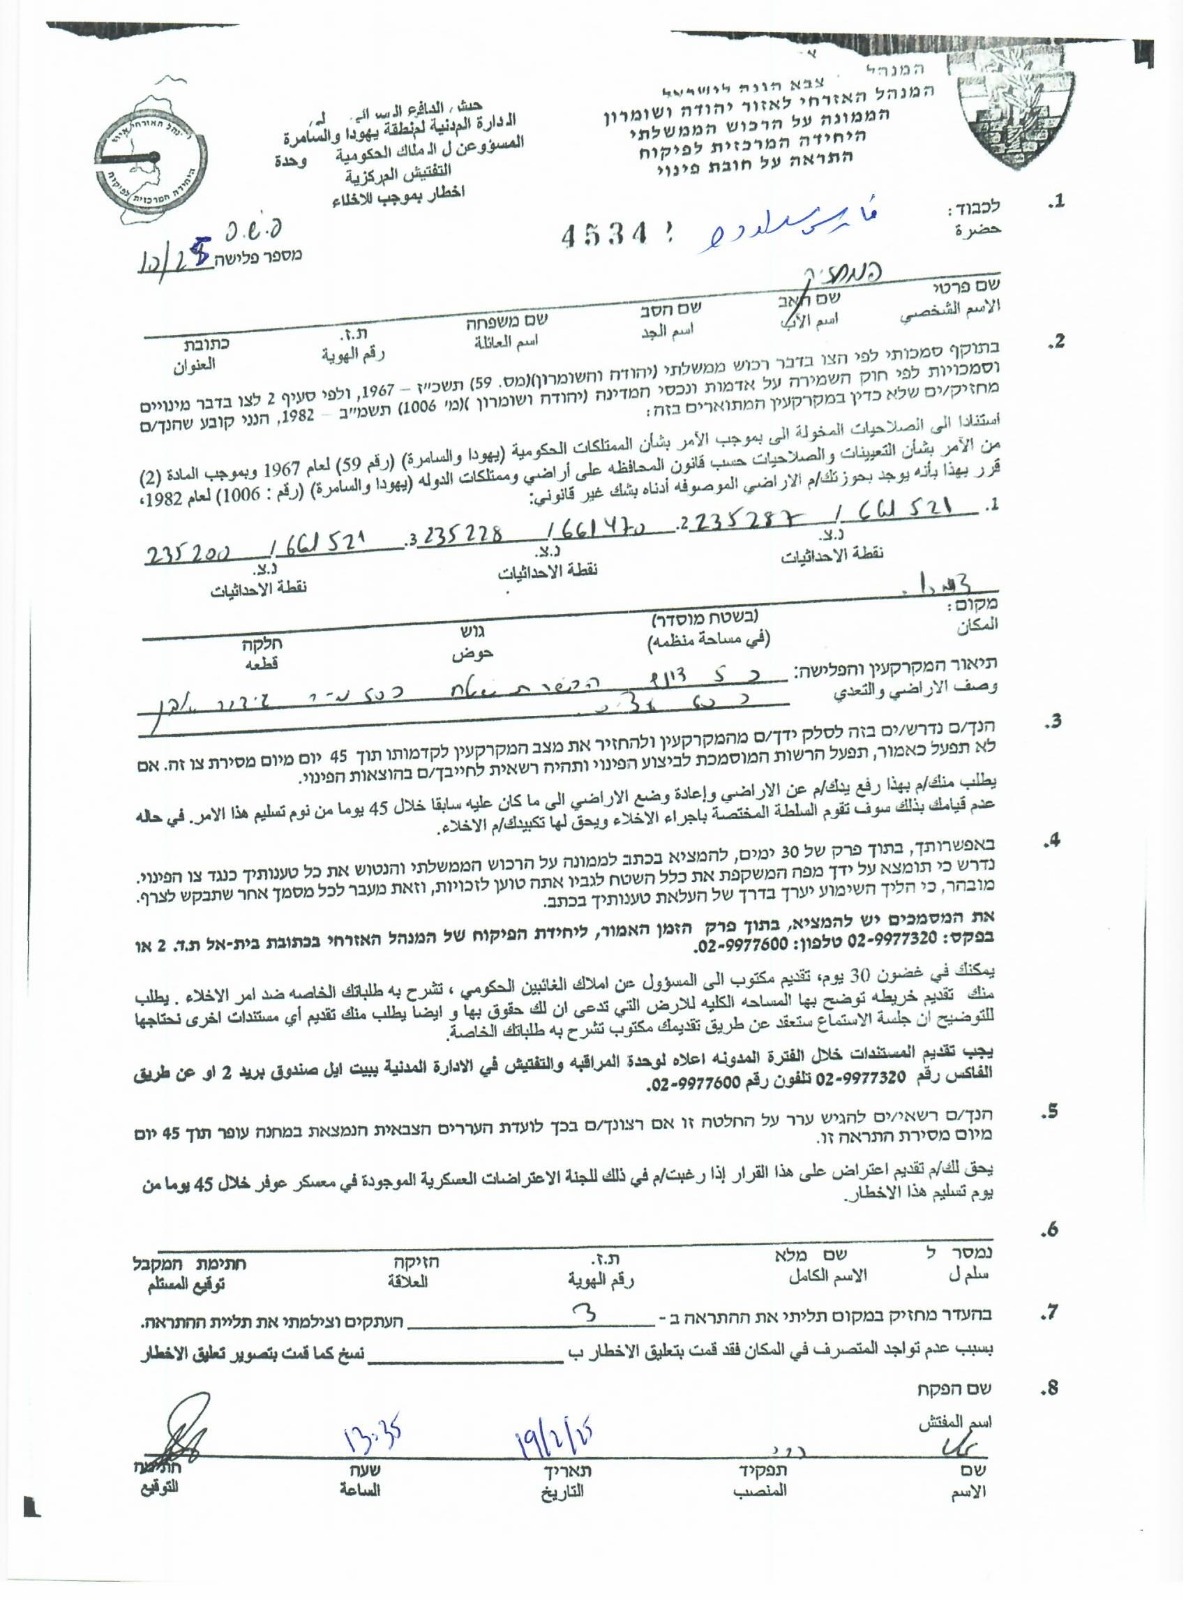 המנהל
צבא הגנה לישראל
המנהל האזרחי לאזור יהודה ושומרון
הממונה על הרכוש הממשלתי
היחידה המרכזית לפיקוח
התראה על חובת פינוי
الدفاع
الادارة المدنية لمنطقة يهودا والسامرة
المسؤوعن ل الملاك الحكومية وحدة
التفتيش المركزية
اخطار بموجب للاخلاء
1. לכבוד:
حضرة
4534
מספר פלישה 10/25
המחזיק
שם פרטי שם האב שם הסב שם משפחה ת.ז. כתובת
الاسم الشخصي اسم الأب اسم الجد اسم العائلة رقم الهوية العنوان
2. בתוקף סמכותי לפי הצו בדבר רכוש ממשלתי (יהודה והשומרון)(מס. 59) תשכ"ז – 1967, ולפי סעיף 2 לצו בדבר מינויים
וסמכויות לפי חוק השמירה על אדמות ונכסי המדינה (יהודה ושומרון )(מ' 1006) תשמ"ב – 1982, הנני קובע שהנך/ם
מחזיק/ים שלא כדין במקרקעין המתוארים בזה:
استنادا الى الصلاحيات المخولة الى بموجب الأمر بشأن الممتلكات الحكومية (يهودا والسامرة) (رقم 59) لعام 1967 وبموجب المادة (2)
من الأمر بشأن التعيينات والصلاحيات حسب قانون المحافظه على أراضي وممتلكات الدوله (يهودا والسامرة) (رقم : 1006) لعام 1982،
قرر بهذا بأنه يوجد بحوزتك/م الاراضي الموصوفه أدناه بشك غير قانوني:
1. 235287 / 661521 2. 235228 / 661470 3. 235200 / 661521
נ.צ. נ.צ. נ.צ.
نقطة الاحداثيات نقطة الاحداثيات نقطة الاحداثيات
מקום:
المكان
(בשטח מוסדר) גוש חלקה
(في مساحة منظمه) حوض قطعه
תיאור המקרקעין והפלישה:
وصف الاراضي والتعدي
3. הנך/ם נדרש/ים בזה לסלק ידך/ם מהמקרקעין ולהחזיר את מצב המקרקעין לקדמותו תוך 45 יום מיום מסירת צו זה. אם
לא תפעל כאמור, תפעל הרשות המוסמכת לביצוע הפינוי ותהיה רשאית לחייבך/ם בהוצאות הפינוי.
يطلب منك/م بهذا رفع يدك/م عن الاراضي وإعادة وضع الاراضي الى ما كان عليه سابقا خلال 45 يوما من نوم تسليم هذا الامر. في حاله
عدم قيامك بذلك سوف تقوم السلطة المختصة باجراء الاخلاء ويحق لها تكبيدك/م الاخلاء.
4. באפשרותך, בתוך פרק של 30 ימים, להמציא בכתב לממונה על הרכוש הממשלתי והנטוש את כל טענותיך כנגד צו הפינוי.
נדרש כי תומצא על ידך מפה המשקפת את כלל השטח לגביו אתה טוען לזכויות, וזאת מעבר לכל מסמך אחר שתבקש לצרף.
מובהר, כי הליך השימוע יערך בדרך של העלאת טענותיך בכתב.
את המסמכים יש להמציא, בתוך פרק הזמן האמור, ליחידת הפיקוח של המנהל האזרחי בכתובת בית-אל ת.ד. 2 או
בפקס: 02-9977320 טלפון: 02-9977600.
يمكنك في غضون 30 يوم، تقديم مكتوب الى المسؤول عن املاك الغائبين الحكومي ، تشرح به طلباتك الخاصه ضد امر الاخلاء . يطلب
منك تقديم خريطه توضح بها المساحه الكليه للارض التي تدعى ان لك حقوق بها و ايضا يطلب منك تقديم أي مستندات اخرى نحتاجها
للتوضيح ان جلسة الاستماع ستعقد عن طريق تقديمك مكتوب تشرح به طلباتك الخاصة.
يجب تقديم المستندات خلال الفترة المدونه اعلاه لوحدة المراقبه والتفتيش في الادارة المدنية ببيت ايل صندوق بريد 2 او عن طريق
الفاكس رقم 02-9977320 تلفون رقم 02-9977600.
5. הנך/ם רשאי/ים להגיש ערר על החלטה זו אם רצונך/ם בכך לועדת העררים הצבאית הנמצאת במחנה עופר תוך 45 יום
מיום מסירת התראה זו.
يحق لك/م تقديم اعتراض على هذا القرار إذا رغبت/م في ذلك للجنة الاعتراضات العسكرية الموجودة في معسكر عوفر خلال 45 يوما من
يوم تسليم هذا الاخطار.
6.
נמסר ל שם מלא ת.ז. הזיקה חתימת המקבל
سلم ل الاسم الكامل رقم الهوية العلاقة توقيع المستلم
7. בהעדר מחזיק במקום תליתי את ההתראה ב - 3 העתקים וצילמתי את תליית ההתראה.
بسبب عدم تواجد المتصرف في المكان فقد قمت بتعليق الاخطار ب نسخ كما قمت بتصوير تعليق الاخطار
8. שם הפקח
اسم المفتش
19/2/25 13:35
שם תפקיד תאריך שעה חתימה
الاسم المنصب التاريخ الساعة التوقيع